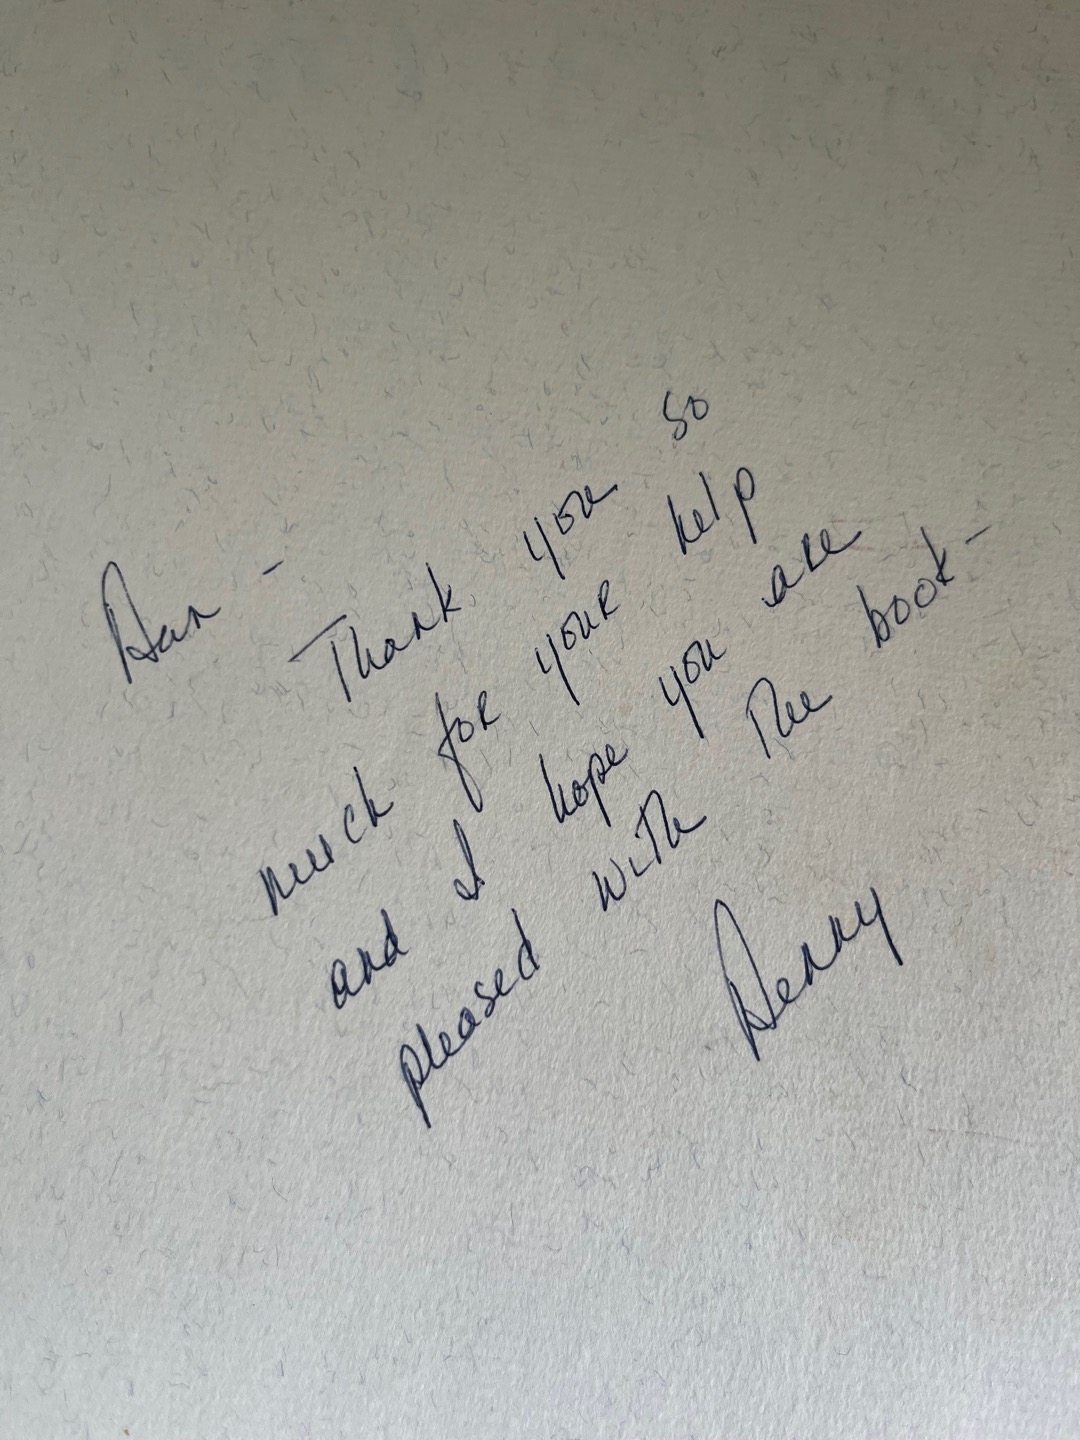 Dan -
Thank you so
much for your help
and I hope you are
pleased with the book -
Denny